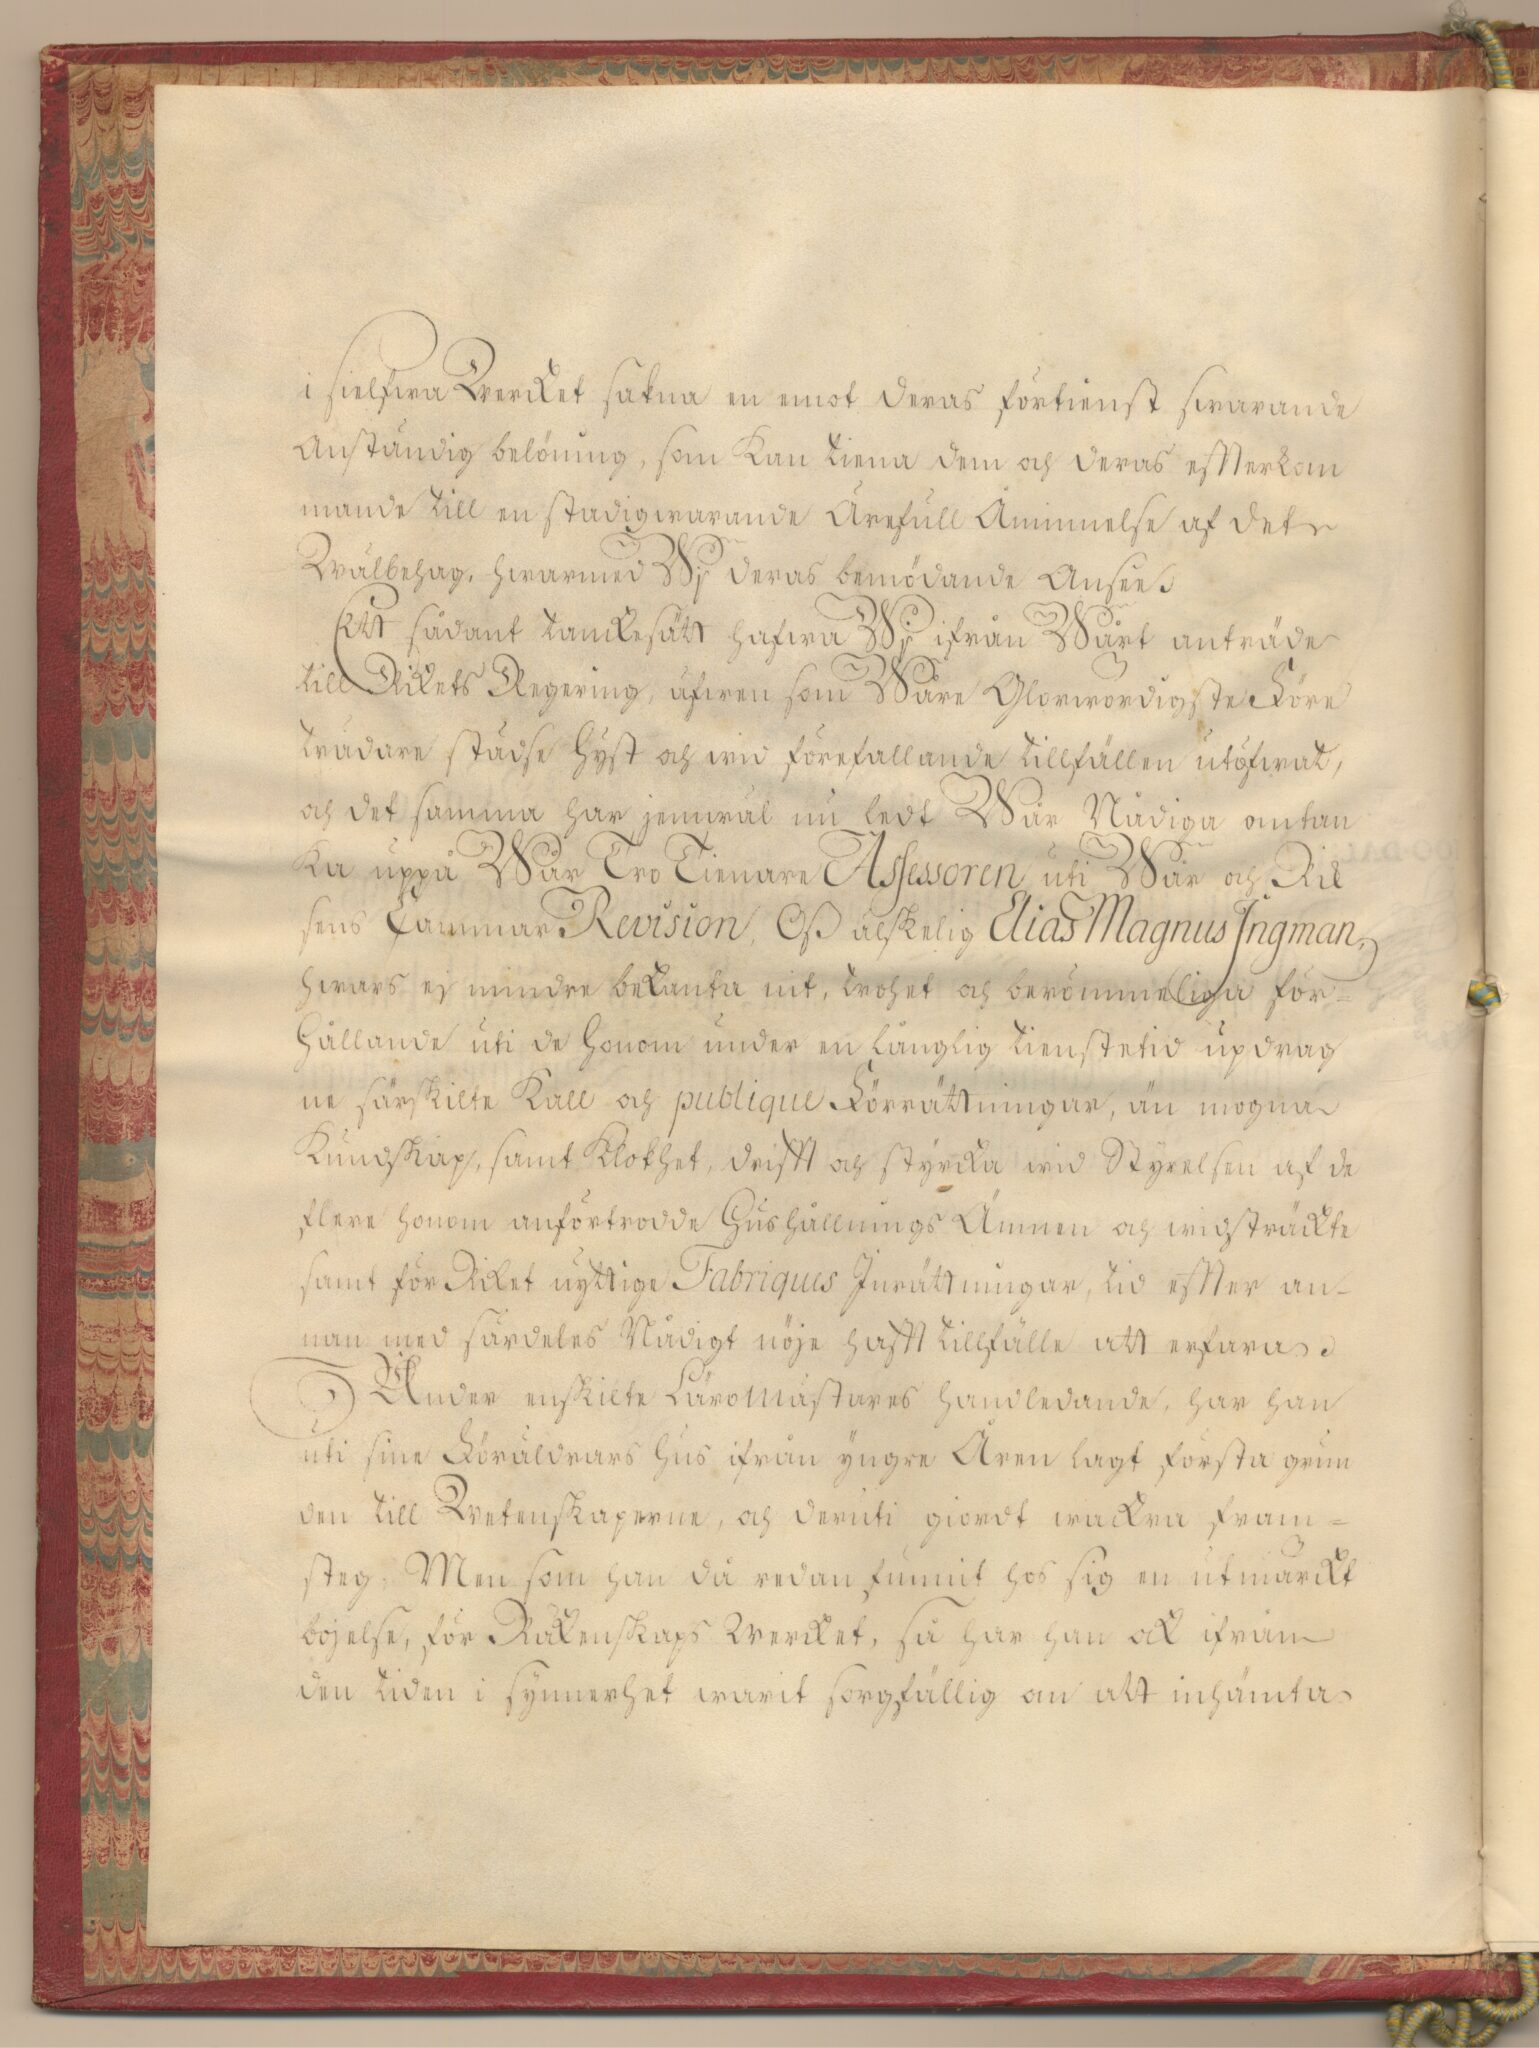 i sielfwa Wercket sakna en emot deras förtienst swarande
Anständig belöning, som Kan tiena dem och deras effterkom
mande till en stadigwarande Ärefull Åminnelse af det
Wälbehag, hwarmed Wij deras bemödande Ansee.
Ett sådant tanckesätt hafwa Wij ifrån Wårt anträde
till Rikets Regering, äfwen som Wåre Glorwördigste Före
trädare städse hyst och wid förefallande tillfällen utöfwat,
och det samma har jemwäl nu ledt Wår Nådiga omtan
Ka uppå Wår Tro Tienare Assessoren uti Wår och Rik
sens Cammar Revision, Oß älskelig Elias Magnus Ingman,
hwars ej mindre bekanta nit, trohet och berömmeliga för=
hållande uti de honom under en långlig tienstetid updrag
ne särskilte Kall och publique Förrättningar, än mogna
Kundskap, samt Klokhet, drifft och styrcka wid Styrelsen af de
flere honom anförtrodde Hushållnings Ämnen och widsträckte
samt för Riket nyttige Fabriques Inrättningar, tid effter an-
nan med särdeles Nådigt nöje hafft tillfälle att erfara.
Under enskilte Läromästares handledande, har han
uti sine Föräldrars hus ifrån yngre Åren lagt första grun
den till Wetenskaperne, och deruti giordt wackra fram=
steg. Men som han då redan funnit hos sig en utmärckt
böjelse, för Räkenskaps Wercket, så har han ock ifrån
den tiden i synnerhet warit sorgfällig om att inhämta